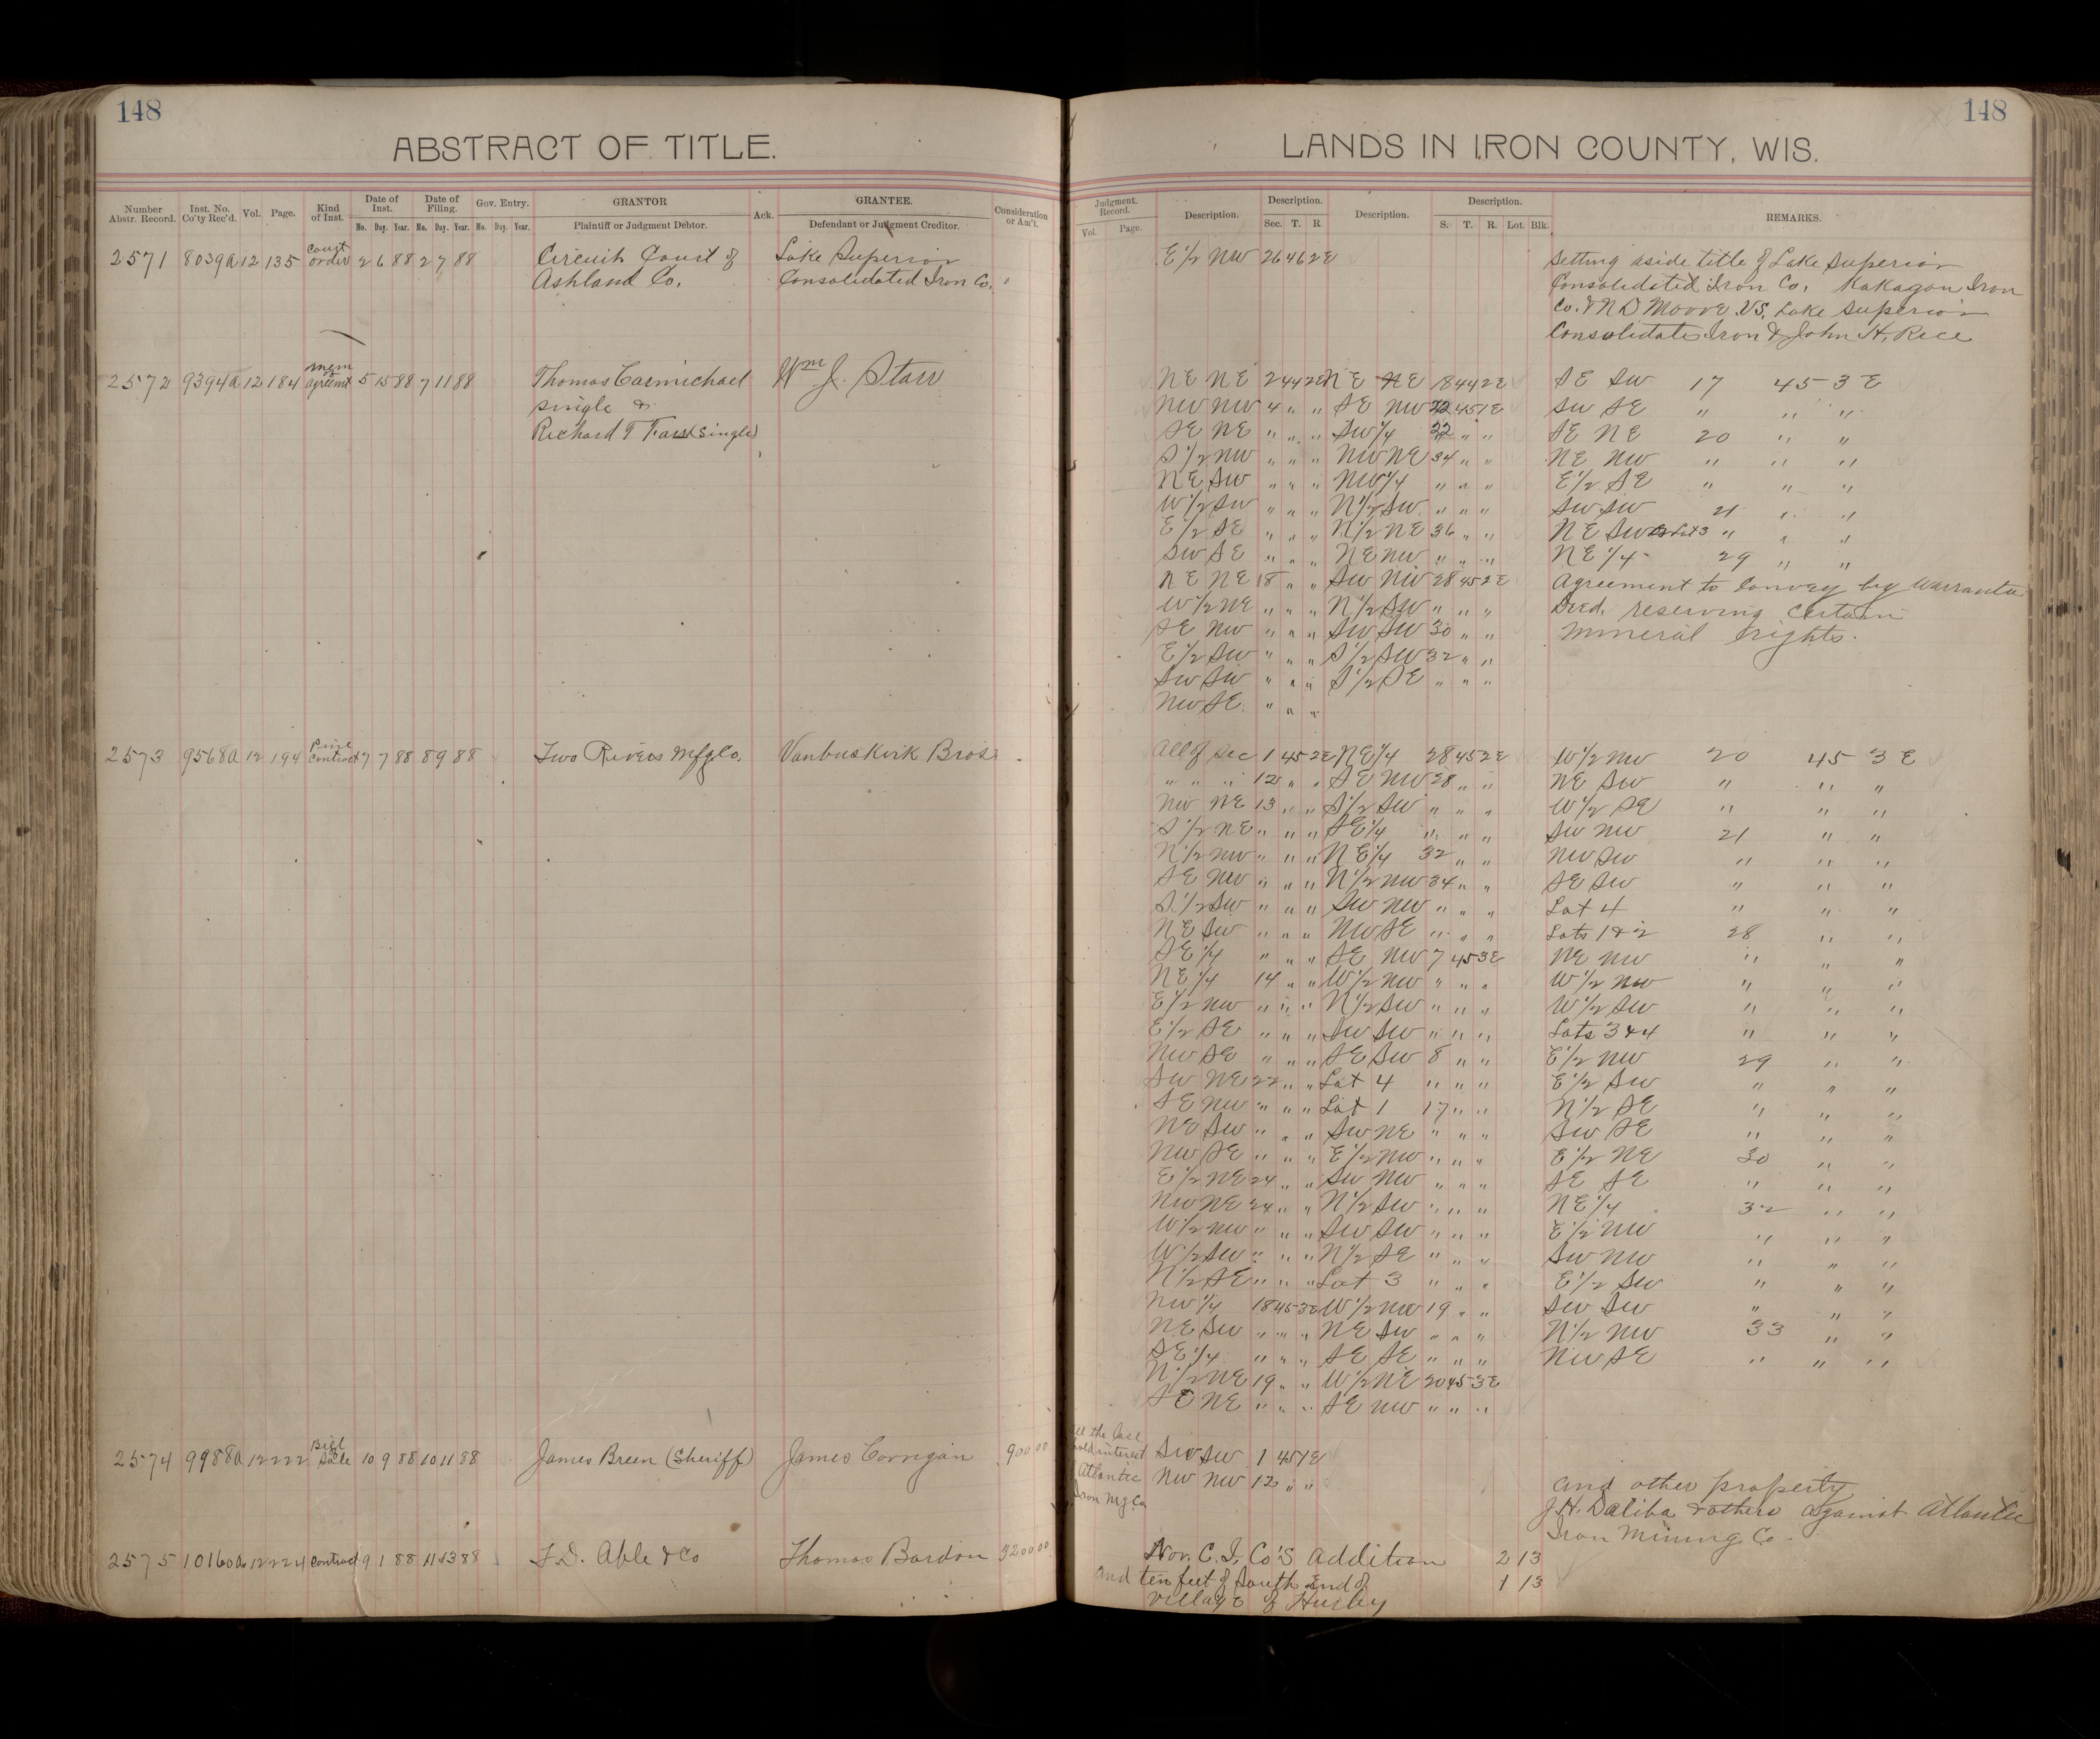 148
ABSTRACT OF TITLE.
Number Abstr. Record. Inst. No. Co'ty Rec'd. Vol. Page. Kind of Inst. Date of Inst. Date of Filing. Gov. Entry. GRANTOR Ack. GRANTEE. Consideration or Am't.
Mo. Day. Year. Mo. Day. Year. Mo. Day. Year. Plaintiff or Judgment Debtor. Defendant or Judgment Creditor.
2571 8039a 12 135 Court order 2 6 88 2 7 88 Circuit Court of Lake Superior
Ashland Co. Consolidated Iron Co.
2572 9394a 12 184 mem of agremt 5 15 88 7 11 88 Thomas Carmichael Wm J. Starr
single &
Richard T (single)
2573 9568a 12 194 Pine Contract 7 7 88 8 9 88 Two Rivers Mfg Co. Vanbuskirk Bros
2574 9988a 12 222 Bill Sale 10 9 88 10 11 88 James Breen (Sheriff) James Corrigan 900 00
2575 10160a 12 224 Contract 9 1 88 11 13 88 F.D. Able & Co Thomas Bardon 3200 00
148
LANDS IN IRON COUNTY, WIS.
Judgment Record. Description. Description. Description. Description. REMARKS.
Vol. Page. Sec. T. R. S. T. R. Lot. Blk.
E 1/2 NW 26 46 2E Setting aside title of Lake Superior
Consolidated Iron Co. Kakagon Iron
Co. & N D Moore VS. Lake Superior
Consolidates Iron & John H. Rice
NE NE 2 44 2E NE NE 18 44 2E SE SW 17 45 3 E
NW NW 4 " " SE NW 22 45 1E SW SE " " "
SE NE " " " SW 1/4 22 " " SE NE 20 " "
S 1/2 NW " " " NW NE 34 " " NE NW " " "
NE SW " " " NW 1/4 " " " E 1/2 SE " " "
W 1/2 SW " " " N 1/2 SW " " " SW SW 21 " "
E 1/2 SE " " " N 1/2 NE 36 " " NE SW or Lot 3 " " "
SW SE " " " NE NW " " " NE 1/4 29 " "
NE NE 18 " " SW NW 28 45 2E Agreement to convey by Warrantee
W 1/2 NE " " " N 1/2 SW " " " Deed, reserving certain
SE NW " " " SW SW 30 " " mineral rights.
E 1/2 SW " " " S 1/2 SW 32 " "
SW SW " " " S 1/2 SE " " "
NW SE " " "
All of Sec 1 45 2E NE 1/4 28 45 2E W 1/2 NW 20 45 3 E
" " " 12 " " SE NW 28 " " NE SW " " "
NW NE 13 " " S 1/2 SW " " " W 1/2 SE " " "
S 1/2 NE " " " SE 1/4 " " " SW NW 21 " "
N 1/2 NW " " " NE 1/4 32 " " NW SW " " "
SE NW " " " N 1/2 NW 34 " " SE SW " " "
S 1/2 SW " " " SW NW " " " Lot 4 " " "
NE SW " " " NW SE " " " Lots 1 & 2 28 " "
SE 1/4 " " " SE NW 7 45 3E NE NW " " "
NE 1/4 14 " " W 1/2 NW " " " W 1/2 NW " " "
E 1/2 NW " " " N 1/2 SW " " " W 1/2 SW " " "
E 1/2 SE " " " SW SW " " " Lots 3 & 4 " " "
NW SE " " " SE SW 8 " " E 1/2 NW 29 " "
SW NE 22 " " Lot 4 " " " E 1/2 SW " " "
SE NW " " " Lot 1 17 " " N 1/2 SE " " "
NE SW " " " SW NE " " " SW SE " " "
NW SE " " " E 1/2 NW " " " E 1/2 NE 30 " "
E 1/2 NE 24 " " SW NW " " " SE SE " " "
NW NE 24 " " N 1/2 SW " " " NE 1/4 32 " "
W 1/2 NW " " " SW SW " " " E 1/2 NW " " "
W 1/2 SW " " " N 1/2 SE " " " SW NW " " "
N 1/2 SE " " " Lot 3 " " " E 1/2 SW " " "
NW 1/4 18 45 3E W 1/2 NW 19 " " SW SW " " "
NE SW " " " NE SW " " " N 1/2 NW 33 " "
SE 1/4 " " " SE SE " " " NW SE " " "
N 1/2 NE 19 " " W 1/2 NE 20 45 3E
SE NE " " " SE NW " " "
All the lease
hold interest SW SW 1 45 1E
Atlantic NW NW 12 " " And other property
Iron Mg. Co J.H. Daliba & others against Atlantic
Iron Mining Co.
Nor. C. I. Co's Addition 2 13
and ten feet of South End of 1 13
Village of Hurley